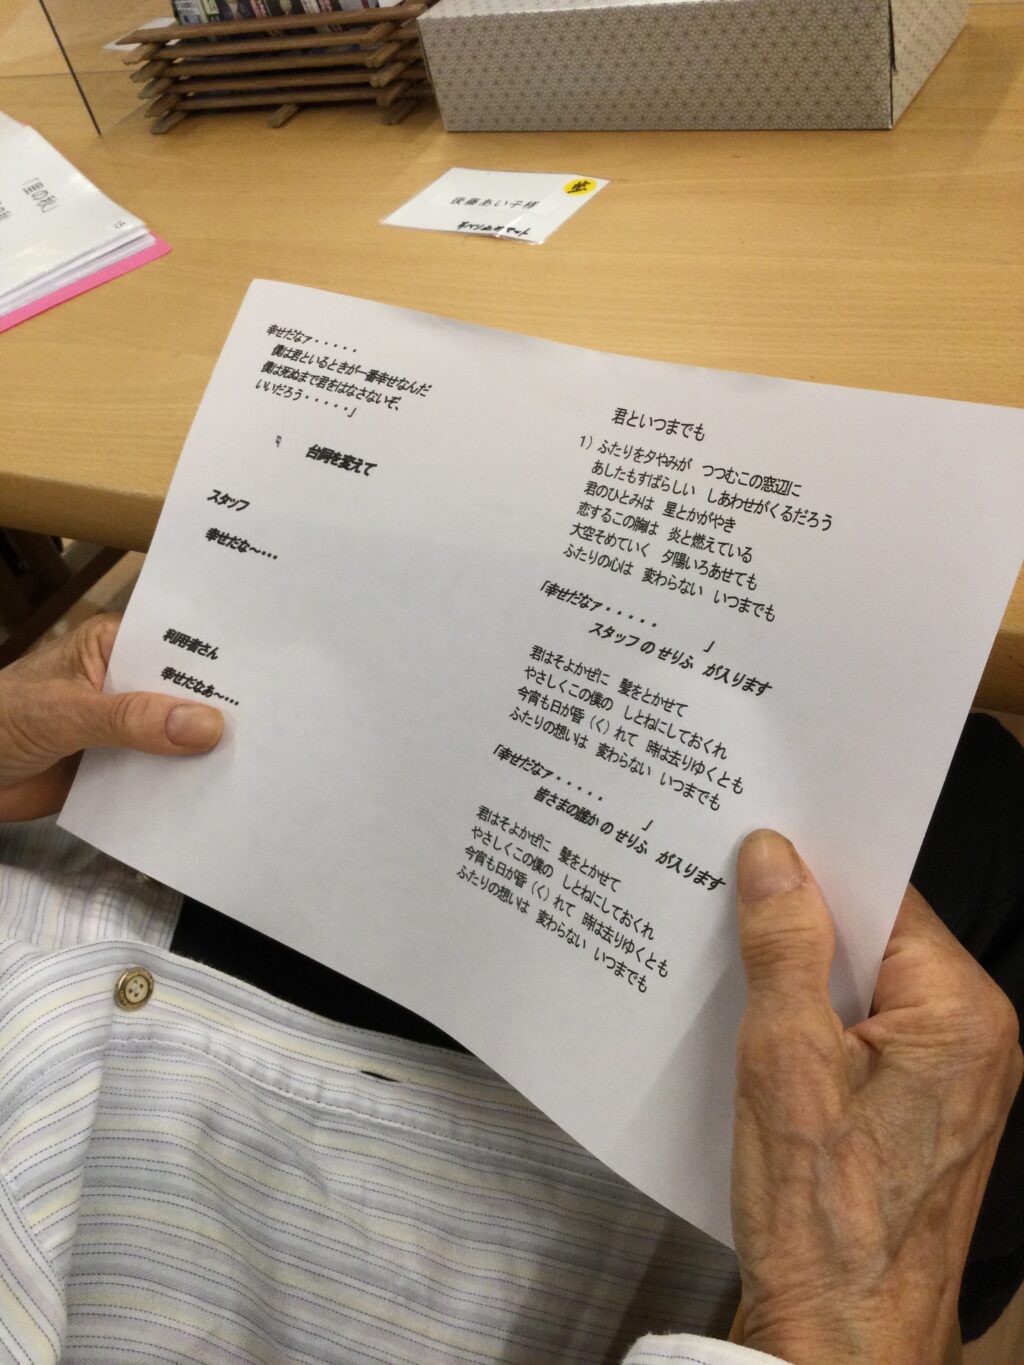 「里の秋」
後藤あい子様
幸せだなァ・・・・・
僕は君といるときが一番幸せなんだ
僕は死ぬまで君をはなさないぞ、
いいだろう・・・・・」
台詞を変えて
スタッフ
幸せだな～・・・
利用者さん
幸せだなあ～・・・
君といつまでも
1）ふたりを夕やみが　つつむこの窓辺に
あしたもすばらしい　しあわせがくるだろう
君のひとみは　星とかがやき
恋するこの胸は　炎と燃えている
大空そめていく　夕陽いろあせても
ふたりの心は　変わらない　いつまでも
「幸せだなァ・・・・・　　　」
スタッフ の せりふ　が入ります
君はそよかぜに　髪をとかせて
やさしくこの僕の　しとねにしておくれ
今宵も日が昏（く）れて　時は去りゆくとも
ふたりの想いは　変わらない　いつまでも
「幸せだなァ・・・・・　　　」
皆さまの誰か の せりふ　が入ります
君はそよかぜに　髪をとかせて
やさしくこの僕の　しとねにしておくれ
今宵も日が昏（く）れて　時は去りゆくとも
ふたりの想いは　変わらない　いつまでも